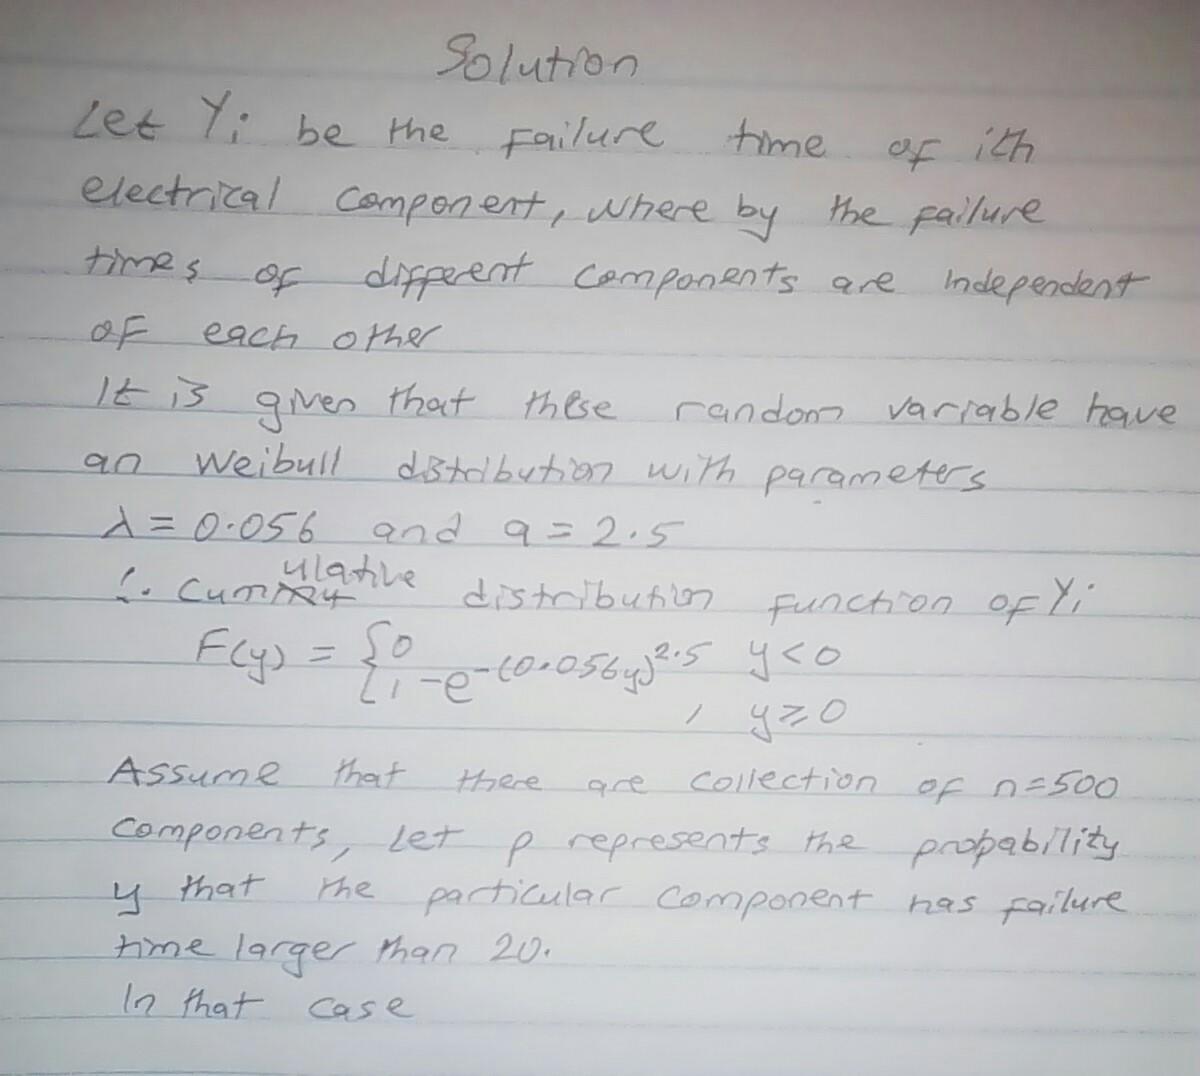 Solution
Let Yi be the failure time of ith
electrical component, where by the failure
times of different components are independent
of each other
It is given that these random variable have
an Weibull distribution with parameters
λ = 0.056 and a = 2.5
∴ Cummulative distribution function of Yi
F(y) = { 0 y < 0
1 - e^-(0.056y)^2.5 , y ≥ 0
Assume that there are collection of n = 500
components, let p represents the probability
y that the particular component has failure
time larger than 20.
In that case